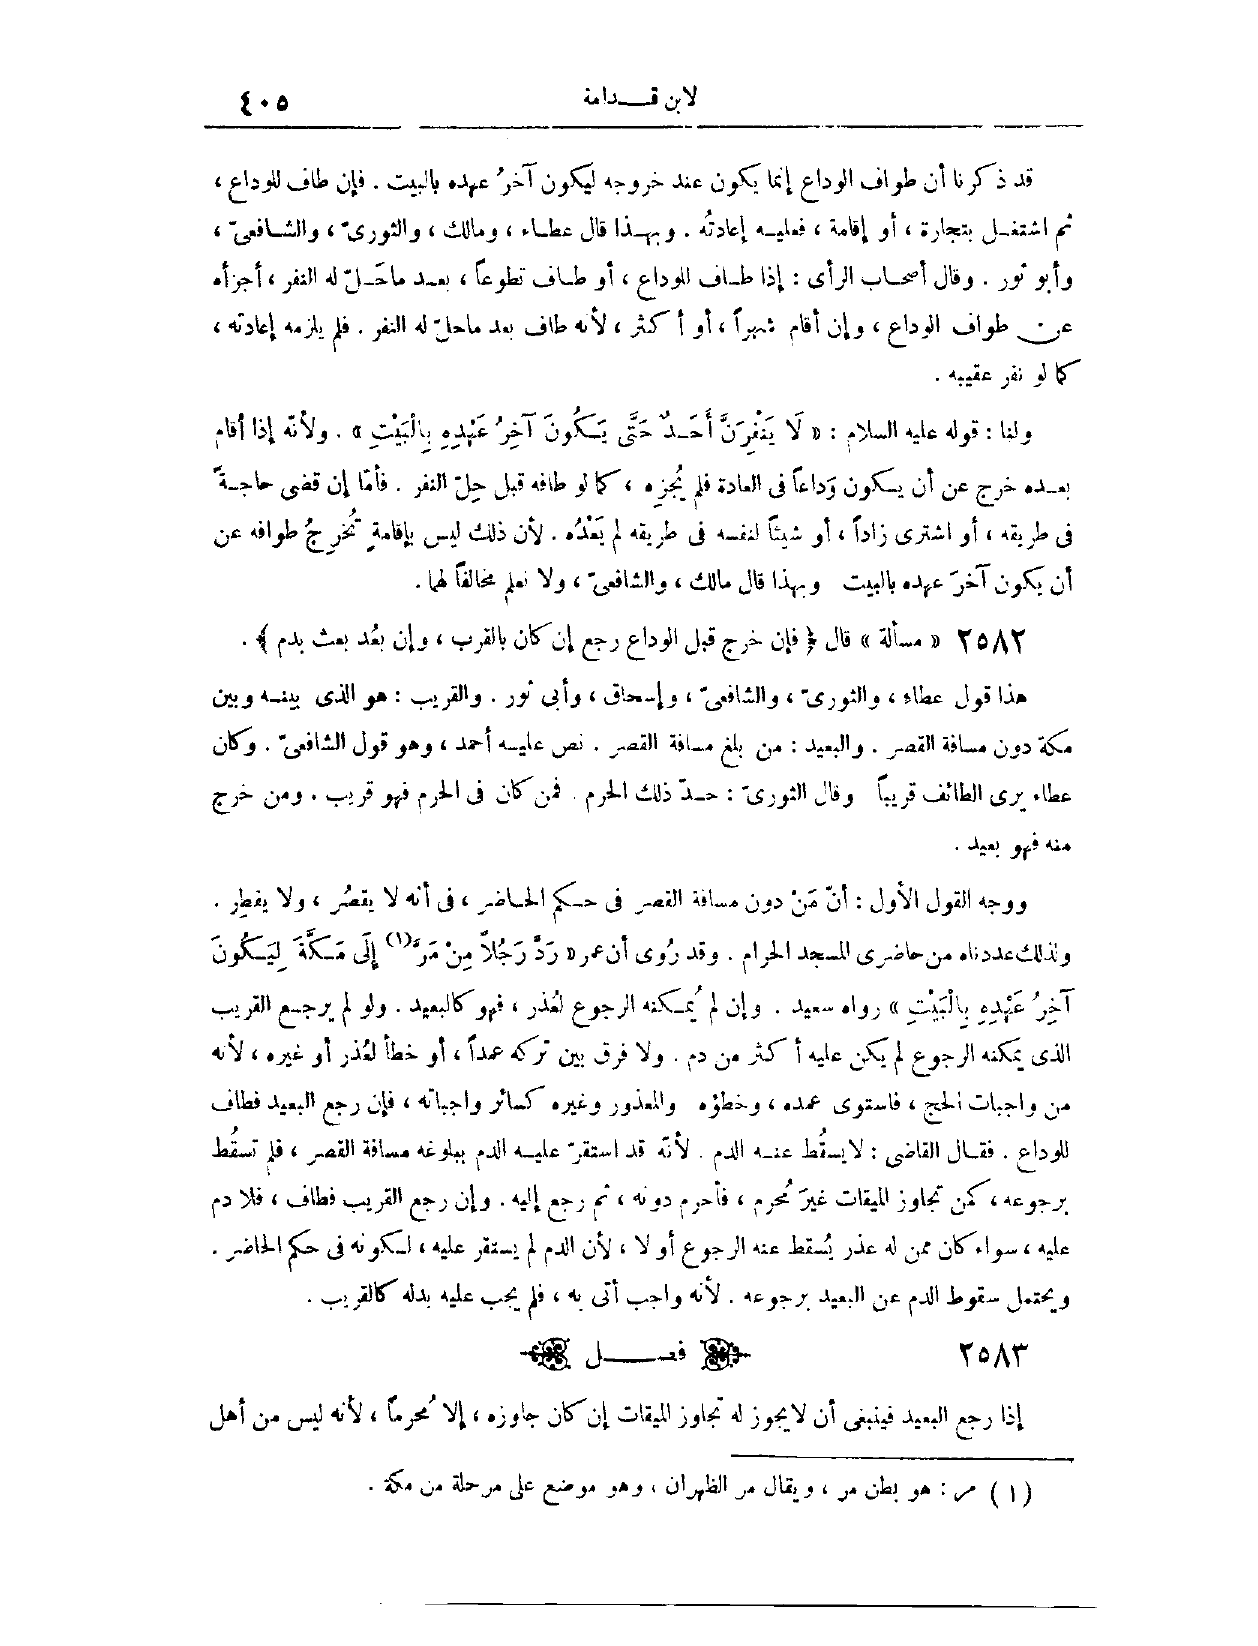 لابن قـدامة ٤٠٥
قد ذكرنا أن طواف الوداع إنما يكون عند خروجه ليكون آخرُ عهده بالبيت . فإن طاف للوداع ،
ثم اشتغـل بتجارة ، أو إقامة ، فعليـه إعادتُه . وبهـذا قال عطـاء ، ومالك ، والثورىّ ، والشـافعىّ ،
وأبو ثور . وقال أصحـاب الرأى : إذا طـاف للوداع ، أو طـاف تطوعاً ، بعـد ماحَـلّ له النفر ، أجزأه
عن طواف الوداع ، وإن أقام شهراً ، أو أكثر ، لأنه طاف بعد ماحلّ له النفر . فلم يلزمه إعادته ،
كما لو نفر عقيبه .
ولنا : قوله عليه السلام : « لَا يَنْفِرَنَّ أَحَـدٌ حَتَّى يَـكُونَ آخِرُ عَهْدِهِ بِالْبَيْتِ » . ولأنّه إذا أقام
بعـده خرج عن أن يـكون وَداعاً فى العادة فلم يُجزِه ، كما لو طافه قبل حِلّ النفر . فأمّا إن قضى حاجـةً
فى طريقه ، أو اشترى زاداً ، أو شيئاً لنفسه فى طريقه لم يَعْدُه . لأن ذلك ليس بإقامةٍ تُخرِجُ طوافه عن
أن يكون آخرَ عهده بالبيت وبهذا قال مالك ، والشافعىّ ، ولا نعلم مخالفاً لهما .
٢٥٨٢ « مسألة » قال ﴿ فإن خرج قبل الوداع رجع إن كان بالقرب ، وإن بعُد بعث بدم ﴾ .
هذا قول عطاء ، والثورىّ ، والشافعىّ ، وإسحاق ، وأبى ثور . والقريب : هو الذى بينـه وبين
مكة دون مسافة القصر . والبعيد : من بلغ مسافة القصر . نص عليـه أحمد ، وهو قول الشافعىّ . وكان
عطاء يرى الطائف قريباً وقال الثورىّ : حـدّ ذلك الحرم . فمن كان فى الحرم فهو قريب . ومن خرج
منه فهو بعيد .
ووجه القول الأول : أنّ مَنْ دون مسافة القصر فى حـكم الحاضر ، فى أنه لا يقصُر ، ولا يفطِر .
ولذلك عددناه من حاضرى المسجد الحرام . وقد رُوى أن عمر « رَدَّ رَجُلاً مِنْ مَرَّ(١) إِلَى مَـكَّةَ لِيَـكُونَ
آخِرُ عَهْدِهِ بِالْبَيْتِ » رواه سعيد . وإن لم يُمـكنه الرجوع لعُذر ، فهو كالبعيد . ولو لم يرجـع القريب
الذى يمكنه الرجوع لم يكن عليه أكثر من دم . ولا فرق بين تركه عمداً ، أو خطأً لعُذر أو غيره ، لأنه
من واجبات الحج ، فاستوى عمده ، وخطؤه والمعذور وغيره كسائر واجباته ، فإن رجع البعيد فطاف
للوداع . فقـال القاضى : لايسقُط عنـه الدم . لأنّه قد استقرّ عليـه الدم ببلوغه مسافة القصر ، فلم تسقُط
برجوعه ، كمن تجاوز الميقات غيرَ مُحرم ، فأحرم دونه ، ثم رجع إليه . وإن رجع القريب فطاف ، فلا دم
عليه ، سواء كان ممن له عذر يُسقط عنه الرجوع أو لا ، لأن الدم لم يستقر عليه ، لـكونه فى حكم الحاضر .
ويحتمل سقوط الدم عن البعيد برجوعه . لأنه واجب أتى به ، فلم يجب عليه بدله كالقريب .
٢٥٨٣ فصـل
إذا رجع البعيد فينبغى أن لايجوز له تجاوز الميقات إن كان جاوزه ، إلا مُحرماً ، لأنه ليس من أهل
(١) مر : هو بطن مر ، ويقال مر الظهران ، وهو موضع على مرحلة من مكة .